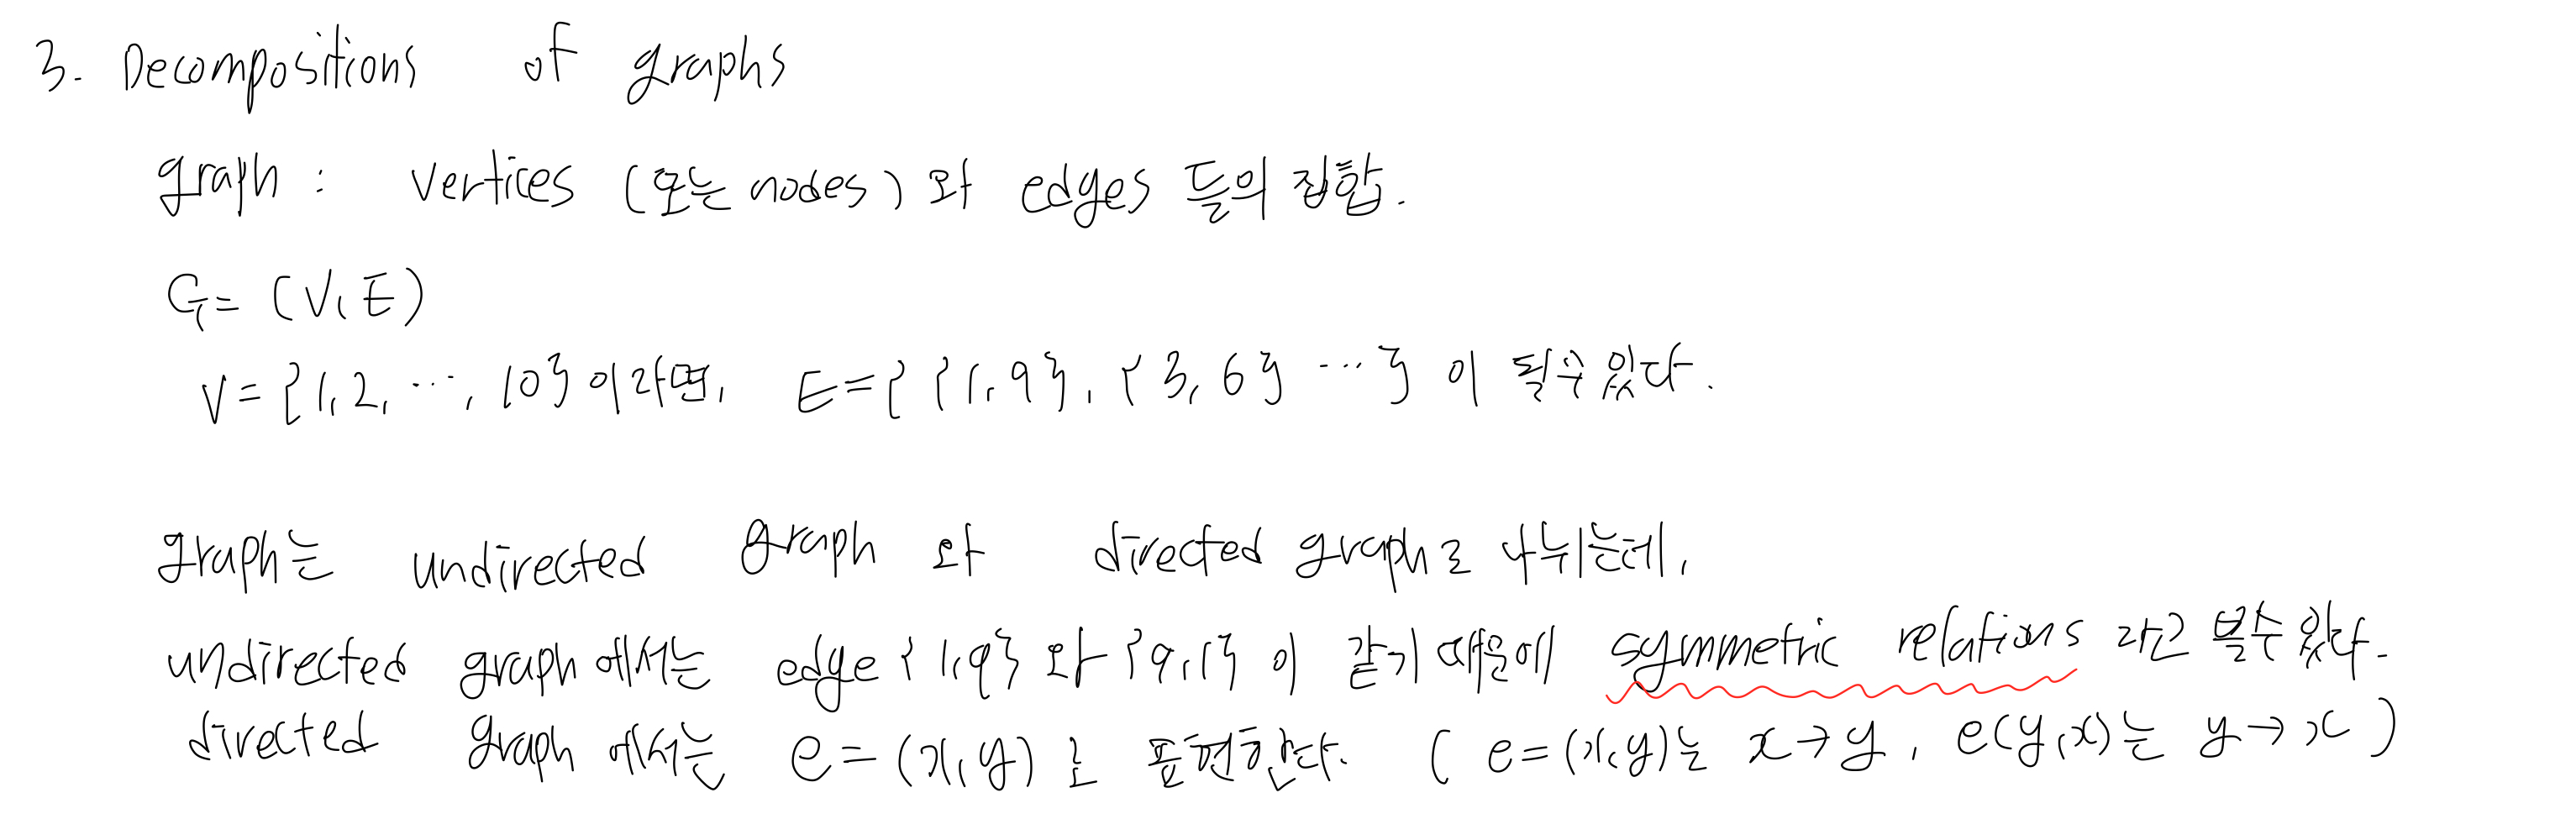 3. Decompositions of graphs
graph : vertices (또는 nodes) 와 edges 들의 집합.
G = (V, E)
V = {1, 2, ..., 10} 이라면, E = { {1, 9}, {3, 6} ... } 이 될수 있다.
graph는 undirected graph 와 directed graph로 나뉘는데,
undirected graph 에서는 edge {1, 9} 와 {9, 1} 이 같기 때문에 symmetric relations 라고 볼수 있다.
directed graph 에서는 e = (x, y) 로 표현한다. ( e = (x, y)는 x → y , e(y, x)는 y → x )